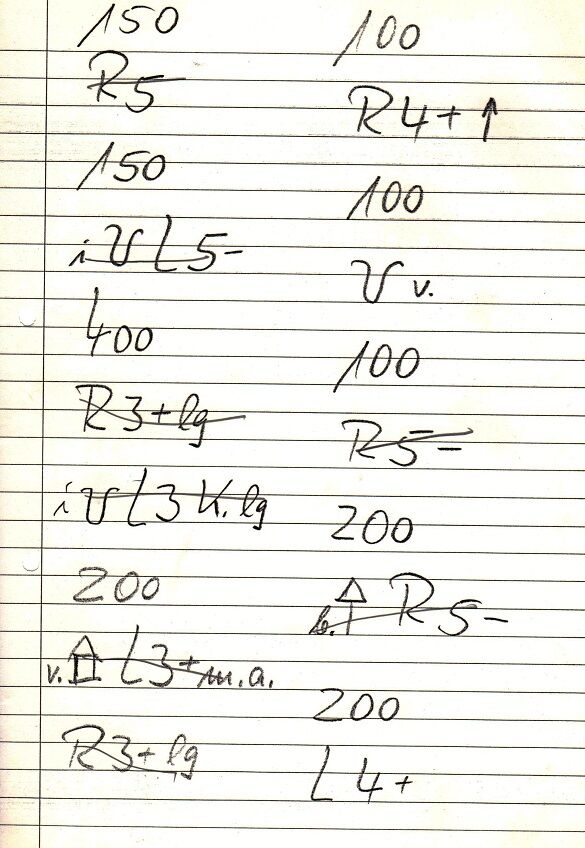 150
R5
150
i V L 5-
400
R3+lg
i V L3 K. lg
200
v. L3+m.a.
R3+lg
100
R4+ ↑
100
V v.
100
R5-
200
b. R5-
200
L4+